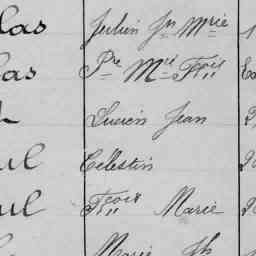 las Julien Jn Mrie 1
las Pre Mie Fçois Ex
Lucien Jean 2
ul Celestin 2
ul Fçois Marie 2
Marie Jh